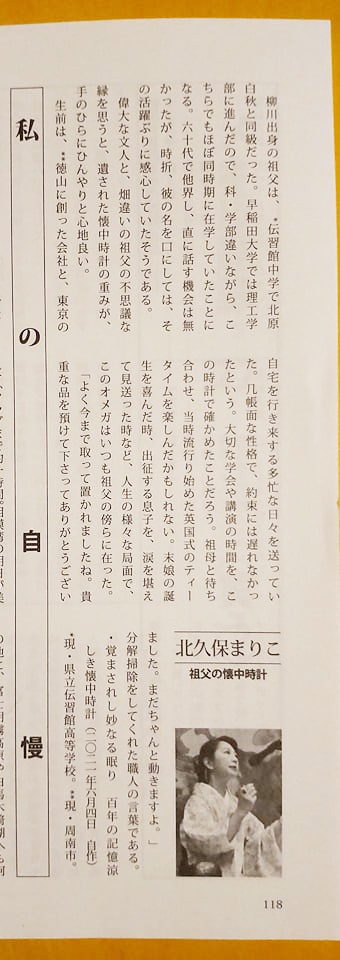 私の自慢
北久保まりこ
祖父の懐中時計
柳川出身の祖父は、*伝習館中学で北原
白秋と同級だった。早稲田大学では理工学
部に進んだので、科・学部違いながら、こ
ちらでもほぼ同時期に在学していたことに
なる。六十代で他界し、直に話す機会は無
かったが、時折、彼の名を口にしては、そ
の活躍ぶりに感心していたそうである。
偉大な文人と、畑違いの祖父の不思議な
縁を思うと、遺された懐中時計の重みが、
手のひらにひんやりと心地良い。
生前は、**徳山に創った会社と、東京の
自宅を行き来する多忙な日々を送ってい
た。几帳面な性格で、約束には遅れなかっ
たという。大切な学会や講演の時間を、こ
の時計で確かめたことだろう。祖母と待ち
合わせ、当時流行り始めた英国式のティー
タイムを楽しんだかもしれない。末娘の誕
生を喜んだ時、出征する息子を、涙を堪え
て見送った時など、人生の様々な局面で、
このオメガはいつも祖父の傍らに在った。
「よく今まで取って置かれましたね。貴
重な品を預けて下さってありがとうござい
ました。まだちゃんと動きますよ。」
分解掃除をしてくれた職人の言葉である。
・覚まされし妙なる眠り　百年の記憶涼
しき懐中時計（二〇二一年六月四日　自作）
*現・県立伝習館高等学校。**現・周南市。
118